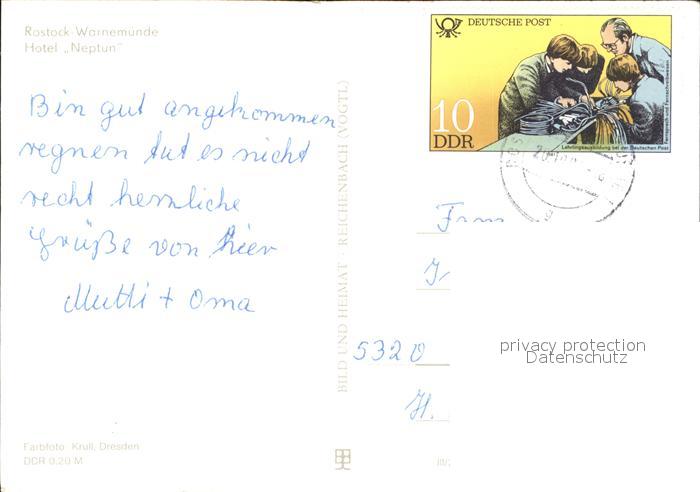 Rostock-Warnemünde
Hotel „Neptun"
DEUTSCHE POST
10
DDR
Lehrlingsausbildung bei der Deutschen Post
Bin gut angekommen
regnen tut es nicht
recht herzliche
Grüße von hier
Mutti + Oma
BILD UND HEIMAT · REICHENBACH (VOGTL)
5320
H.
privacy protection
Datenschutz
Farbfoto: Krull, Dresden
DCR 0,20 M